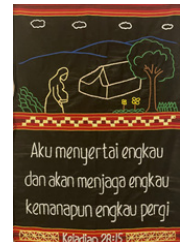 Aku menyertai engkau
dan akan menjaga engkau
kemanapun engkau pergi
Kejadian 28:15